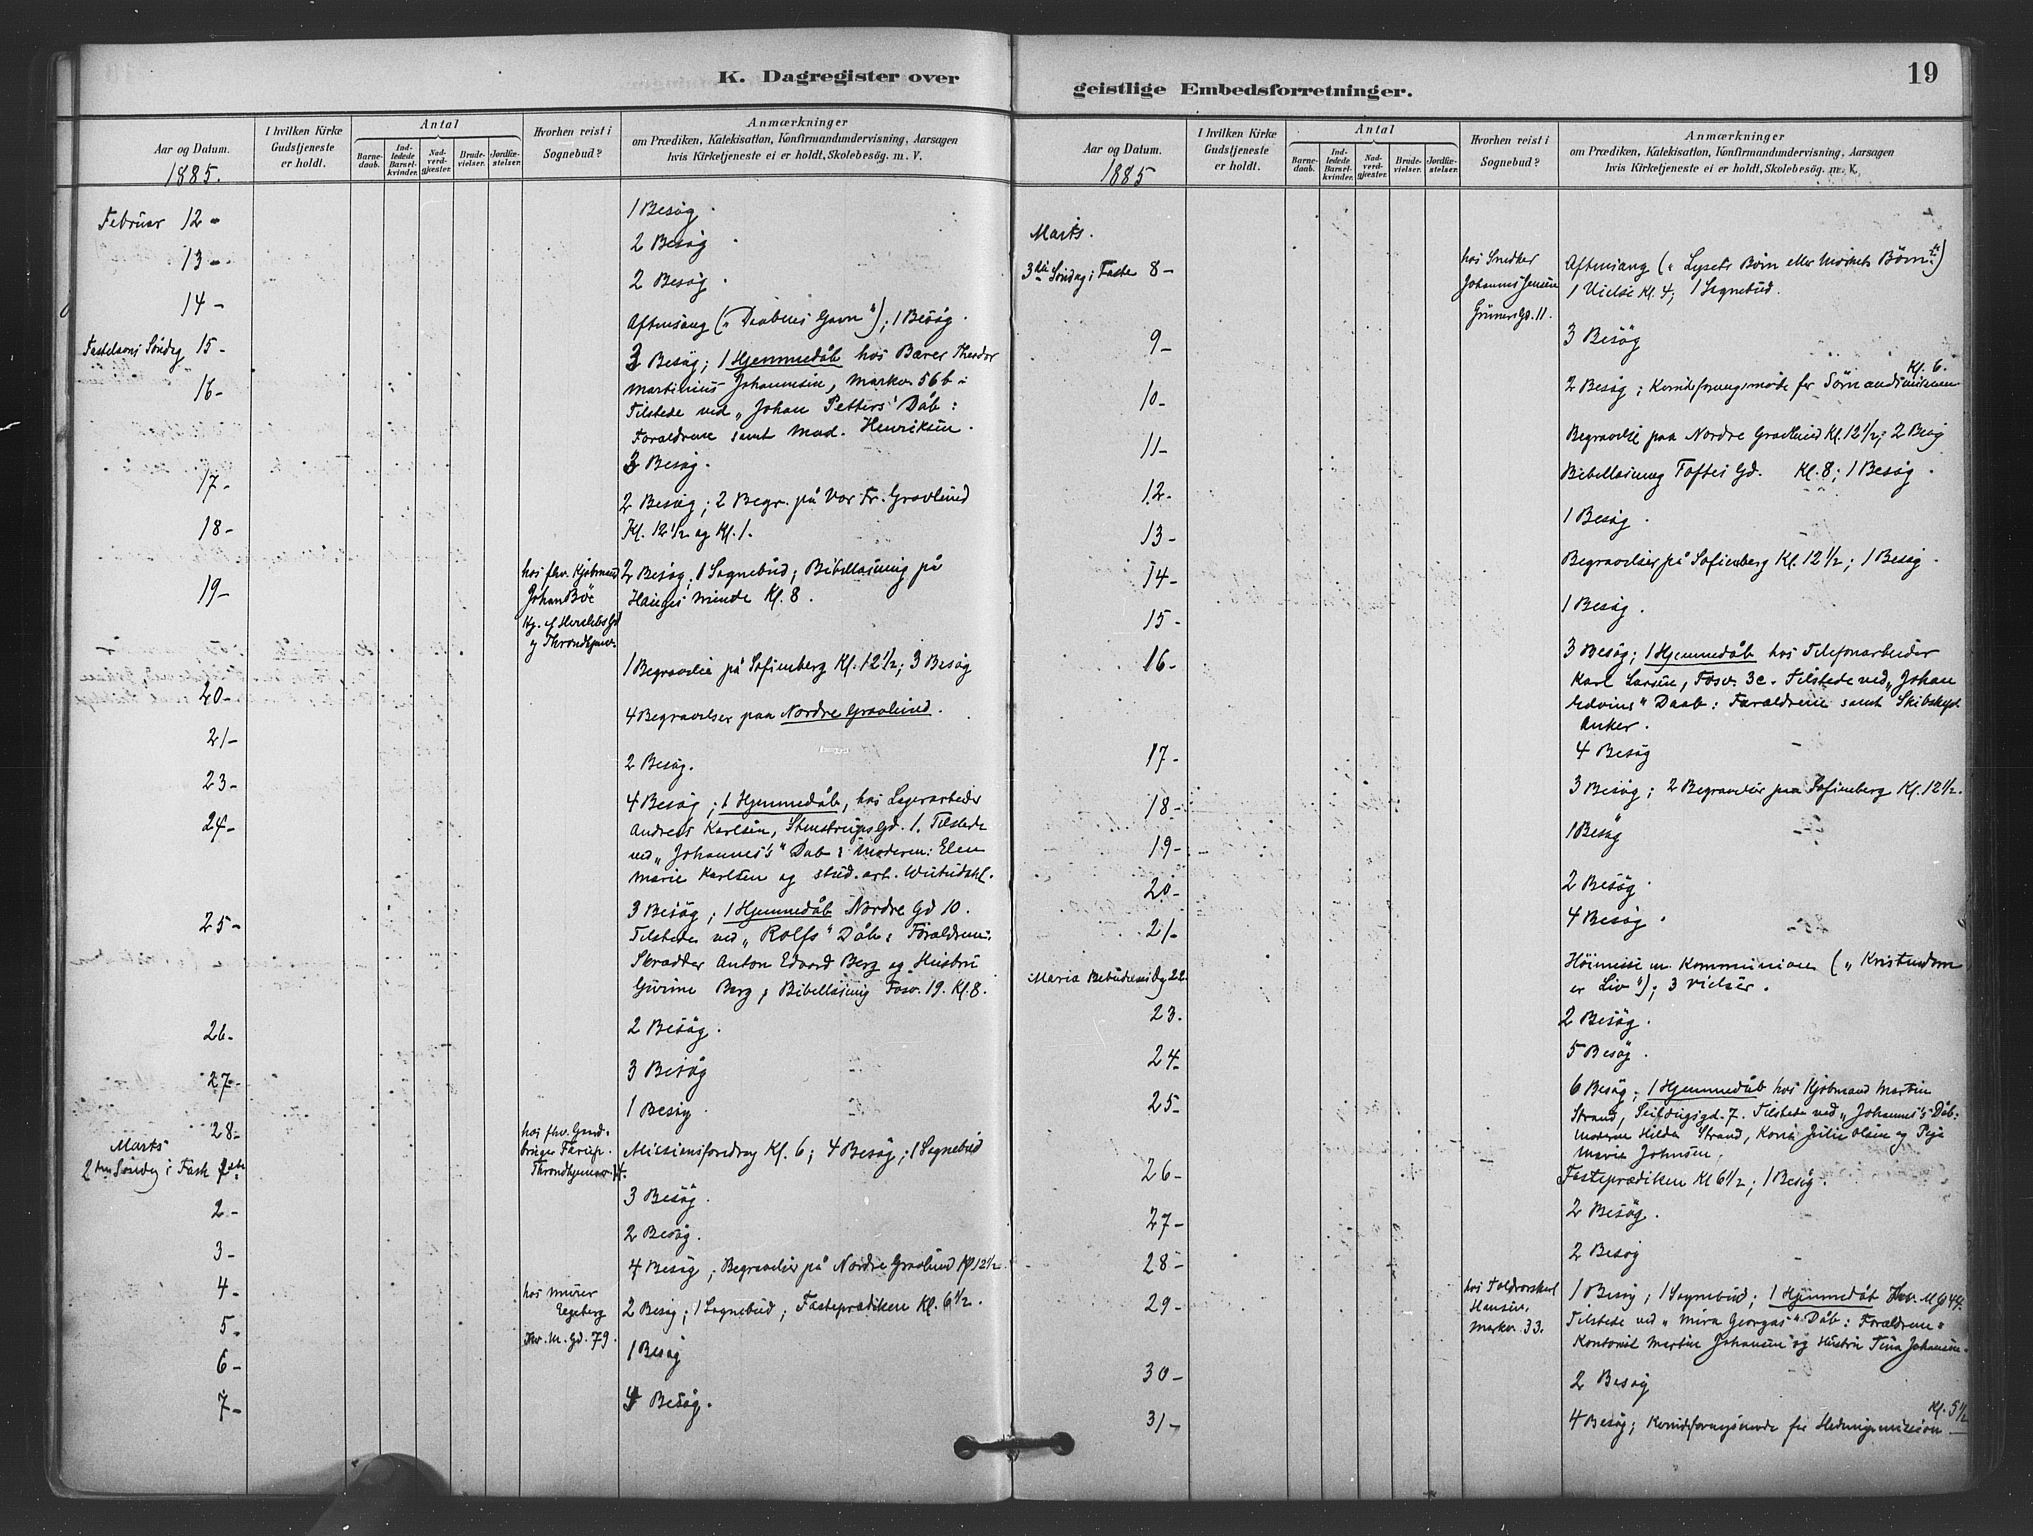 K. Dagregister over
Aar og Datum.
1885.
I hvilken Kirke
Gudstjeneste
er holdt.
Antal
Barne-
daab.
Ind-
ledede
Barsel-
kvinder.
Nad-
verd-
gjæster.
Brude-
vielser.
Jordfæ-
stelser.
Hvorhen reist i
Sognebud?
Anmærkninger
om Prædiken, Katekisation, Konfirmandundervisning, Aarsagen
hvis Kirketjeneste ei er holdt, Skolebesøg. m. V.
Februar 12 -
1 Besøg.
13 -
2 Besøg
14 -
2 Besøg.
Fastelavns Søndag 15 -
Aftensang („ Daabens Gavn“); 1 Besøg.
16 -
3 Besøg; 1 Hjemmedåb hos Bærer Theodor
Martinius Johannesen, Markv. 56 b -
Tilstede ved „Johan Petters“ Dåb:
Forældrene samt Mad. Henriksen.
17 -
3 Besøg.
18 -
2 Besøg; 2 Begr. på Vor Fr. Gravlund
Kl. 12 1/2 og Kl. 1.
19 -
hos fhv. Kjøbmand
Johan Bøe
Hj. af Herslebs Gd
og Throndhjemsv.
2 Besøg; 1 Sognebud; Bibellæsning på
Hauges Minde Kl. 8.
20 -
1 Begravelse på Sofienberg Kl. 12 1/2; 3 Besøg
21 -
4 Begravelser paa Nordre Gravlund.
23 -
2 Besøg.
24 -
4 Besøg; 1 Hjemmedåb, hos Lagerarbeider
Andreas Karlsen, Stenstrups Gd. 1. Tilstede
ved „Johannes's“ Dåb: Moderen: Elen
Marie Karlsen og stud. art.
25 -
3 Besøg; 1 Hjemmedåb Nordre Gd 10.
Tilstede ved „Rolfs“ Dåb: Forældrene:
Skrædder Anton Edvard Berg og Hustru
Berg; Bibellæsning Fosv. 19. Kl. 8.
26 -
2 Besøg.
27 -
3 Besøg
28 -
1 Besøg.
Marts
2den Søndag i Faste 1ste
hos fhv. Gaard-
bruger
Throndhjemsv.
Missionsforedrag Kl. 6; 4 Besøg; 1 Sognebud
2 -
3 Besøg.
3 -
2 Besøg.
4 -
4 Besøg; Begravelser på Nordre Gravlund Kl 12 1/2
5 -
hos Murer
Egeberg
Thv. M. Gd. 79.
2 Besøg; 1 Sognebud; Fasteprædiken Kl. 6 1/2.
6 -
1 Besøg
7 -
4 Besøg.
geistlige Embedsforretninger.
19
Aar og Datum.
1885
I hvilken Kirke
Gudstjeneste
er holdt.
Antal
Barne-
daab.
Ind-
ledede
Barsel-
kvinder.
Nad-
verd-
gjæster.
Brude-
vielser.
Jordfæ-
stelser.
Hvorhen reist i
Sognebud?
Anmærkninger
om Prædiken, Katekisation, Konfirmandundervisning, Aarsagen
hvis Kirketjeneste ei er holdt, Skolebesøg. m. V.
Marts.
3die Søndag i Faste 8 -
hos Snedker
Johannes Jensen
Grüners Gd. 11.
Aftensang („ Lysets Børn eller Mørkets Børn“)
1 Vielse Kl. 4; 1 Sognebud.
9 -
3 Besøg
10 -
Kl. 6.
2 Besøg; Komiteforeningsmøde for Sømandsmissionen
11 -
Begravelse paa Nordre Gravlund Kl. 12 1/2; 2 Besøg
12 -
Bibellæsning Toftes Gd. Kl. 8; 1 Besøg.
13 -
1 Besøg.
14 -
Begravelser på Sofienberg Kl. 12 1/2; 1 Besøg.
15 -
1 Besøg.
16 -
3 Besøg; 1 Hjemmedåb hos Telefonarbeider
Karl Larsen, Fosv. 3c. Tilstede ved „Johan
Edvins“ Daab: Forældrene samt
Anker.
17 -
4 Besøg
18 -
3 Besøg; 2 Begravelser paa Sofienberg Kl. 12 1/2.
19 -
1 Besøg
20 -
2 Besøg.
21 -
4 Besøg.
Maria Bebudelses Dg 22.
Høimesse m. Kommunion („ Kristendom
er Liv“); 3 Vielser.
23.
2 Besøg.
24
5 Besøg.
25 -
6 Besøg; 1 Hjemmedåb hos Kjøbmand Martin
Strand, Seildugsgd. 7. Tilstede ved „Johannes's“ Dåb:
Moderen Hilda Strand, Julie Olsen og Pige
Marie Johnsen.
26 -
Fasteprædiken Kl 6 1/2; 1 Besøg.
27 -
2 Besøg.
28 -
2 Besøg
29 -
hos Toldroerskarl
Hansen.
Markv. 33.
1 Besøg; 1 Sognebud; 1 Hjemmedåb Thv. M. G 44.
Tilstede ved „ Mira Georgas“ Dåb: Forældrene:
Kontorist Martin Johansen og Hustru Tina Johansen.
30 -
2 Besøg
31 -
Kl. 5 1/2
4 Besøg; Komiteforeningsmøde for Hedningemission